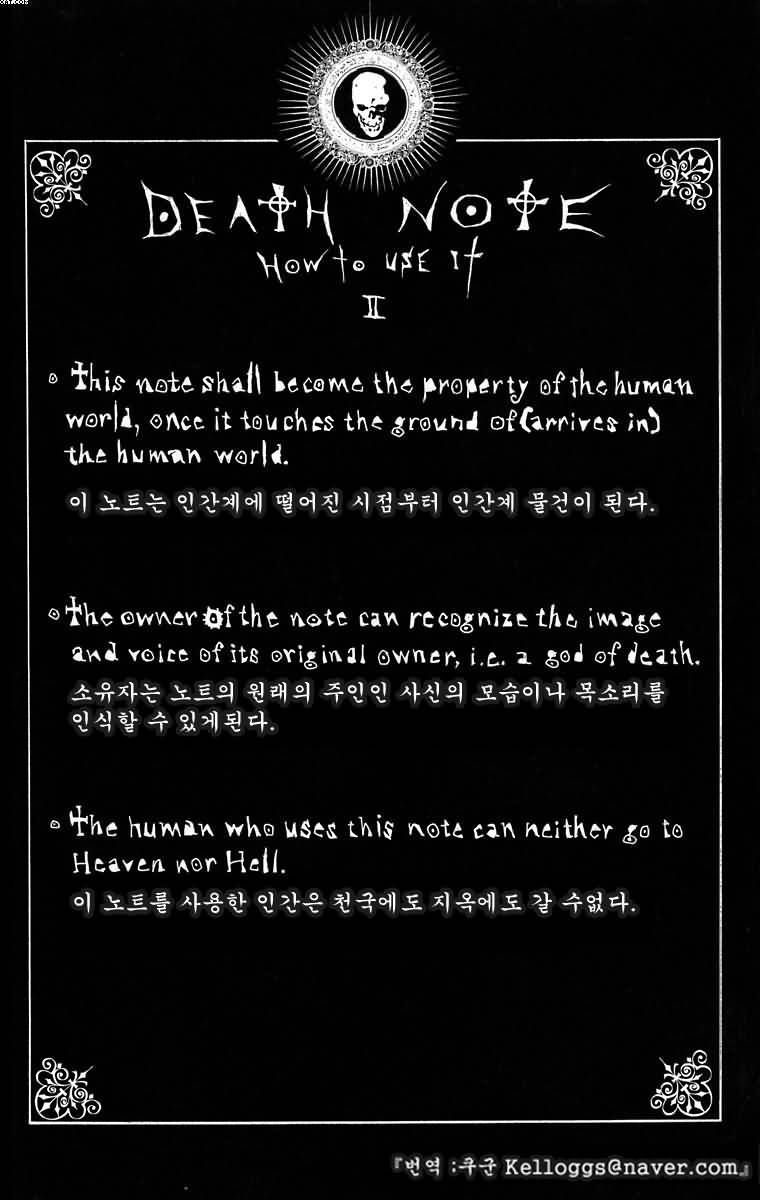 DEATH NOTE
HOW to USE It
II
This note shall become the property of the human
world, once it touches the ground of (arrives in)
the human world.
이 노트는 인간계에 떨어진 시점부터 인간계 물건이 된다.
The owner of the note can recognize the image
and voice of its original owner, i.e. a god of death.
소유자는 노트의 원래의 주인인 사신의 모습이나 목소리를
인식할 수 있게된다.
The human who uses this note can neither go to
Heaven nor Hell.
이 노트를 사용한 인간은 천국에도 지옥에도 갈 수없다.
『번역 :쿠군 Kelloggs@naver.com』